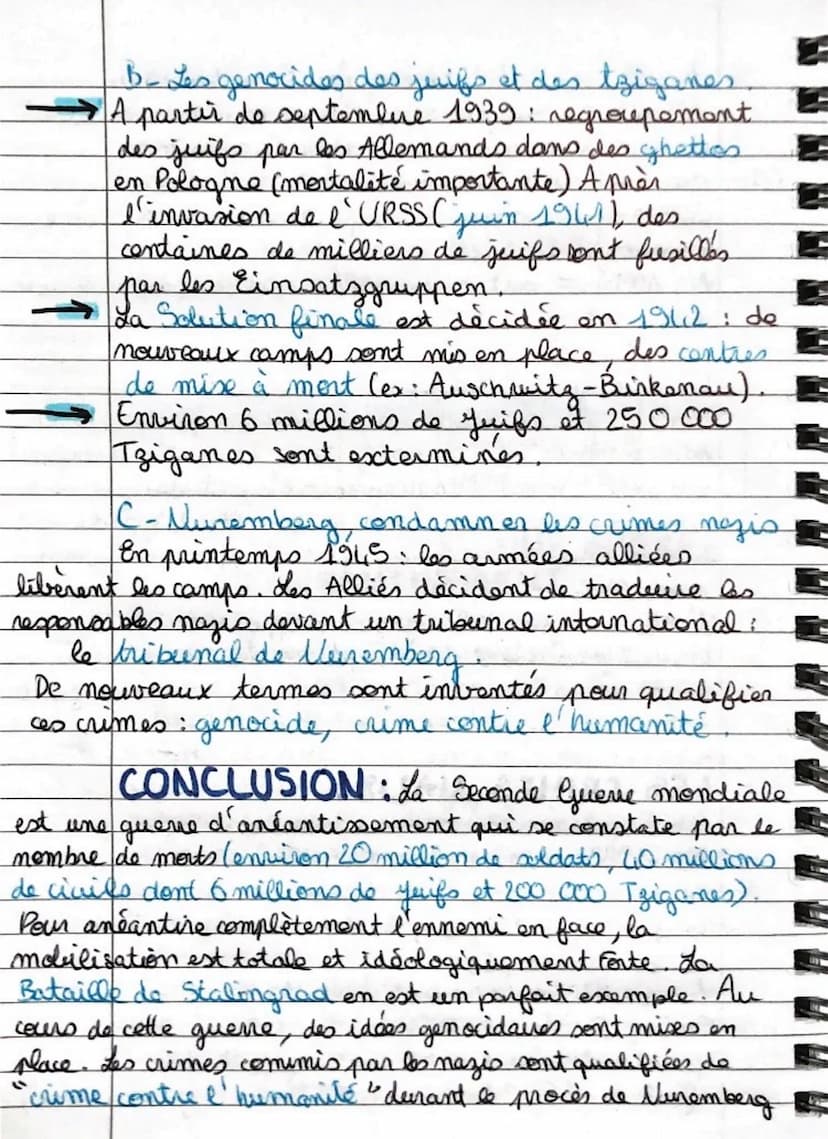 B- Les genocides des juifs et des tziganes.
A partir de septembre 1939 : regroupement
des juifs par les Allemands dans des ghettos
en Pologne (mortalité importante) Après
l'invasion de l'URSS (juin 1941), des
centaines de milliers de juifs sont fusillés
par les Einsatzgruppen.
La Solution finale est décidée en 1942 : de
nouveaux camps sont mis en place, des centres
de mise à mort (ex : Auschwitz-Birkenau).
Environ 6 millions de juifs et 250 000
Tziganes sont exterminés.
C - Nuremberg, condamner les crimes nazis
En printemps 1945 : les armées alliées
libèrent les camps. Les Alliés décident de traduire les
responsables nazis devant un tribunal international :
le tribunal de Nuremberg.
De nouveaux termes sont inventés pour qualifier
ces crimes : genocide, crime contre l'humanité.
CONCLUSION : La Seconde Guerre mondiale
est une guerre d'anéantissement qui se constate par le
nombre de morts (environ 20 million de soldats, 40 millions
de civils dont 6 millions de juifs et 200 000 Tziganes).
Pour anéantire complètement l'ennemi en face, la
mobilisation est totale et idéologiquement forte. La
Bataille de Stalingrad en est un parfait exemple. Au
cours de cette guerre, des idées genocidaires sont mises en
place. Les crimes commis par les nazis sont qualifiées de
"crime contre l'humanité" durant le procès de Nuremberg